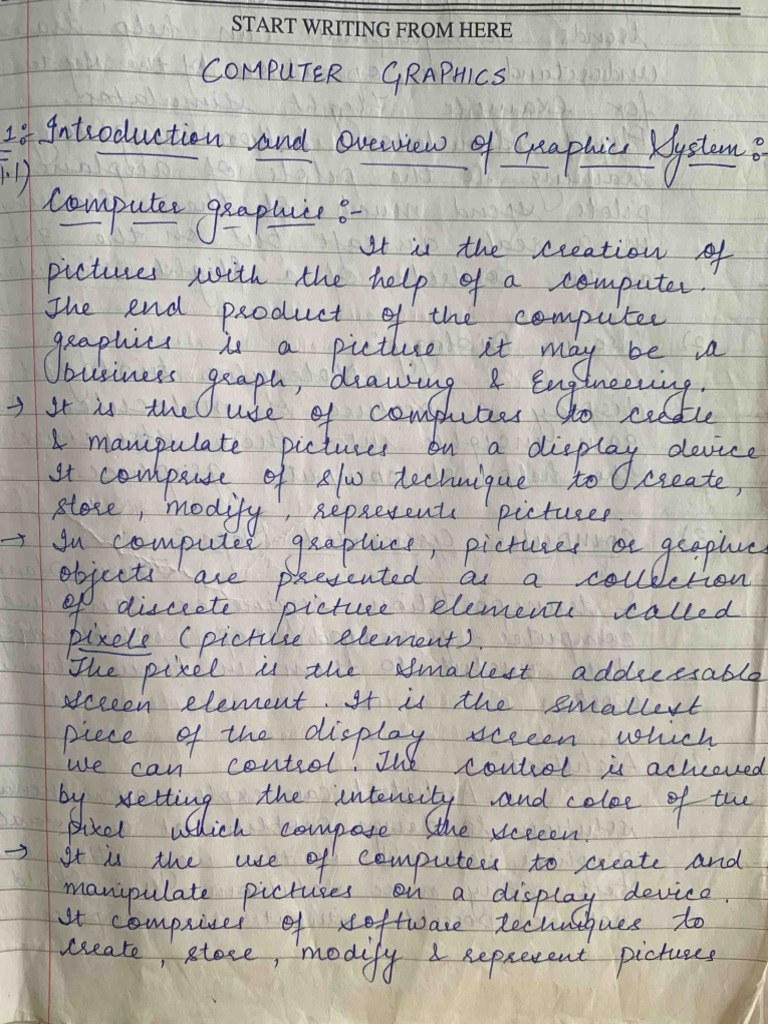 START WRITING FROM HERE
COMPUTER GRAPHICS
1:- Introduction and Overview of Graphics System:-
1.1)
Computer graphics :-
It is the creation of
pictures with the help of a computer.
The end product of the computer
graphics is a picture it may be a
business graph, drawing & Engineering.
→ It is the use of computers to create
& manipulate pictures on a display device
It comprise of s/w technique to create,
store, modify, represents pictures.
→ In computer graphics, pictures or graphics
objects are presented as a collection
of discrete picture elements called
pixels (picture element).
The pixel is the smallest addressable
screen element. It is the smallest
piece of the display screen which
we can control. The control is achieved
by setting the intensity and color of the
pixel which compose the screen.
→ It is the use of computers to create and
manipulate pictures on a display device.
It comprises of software techniques to
create, store, modify & represent pictures